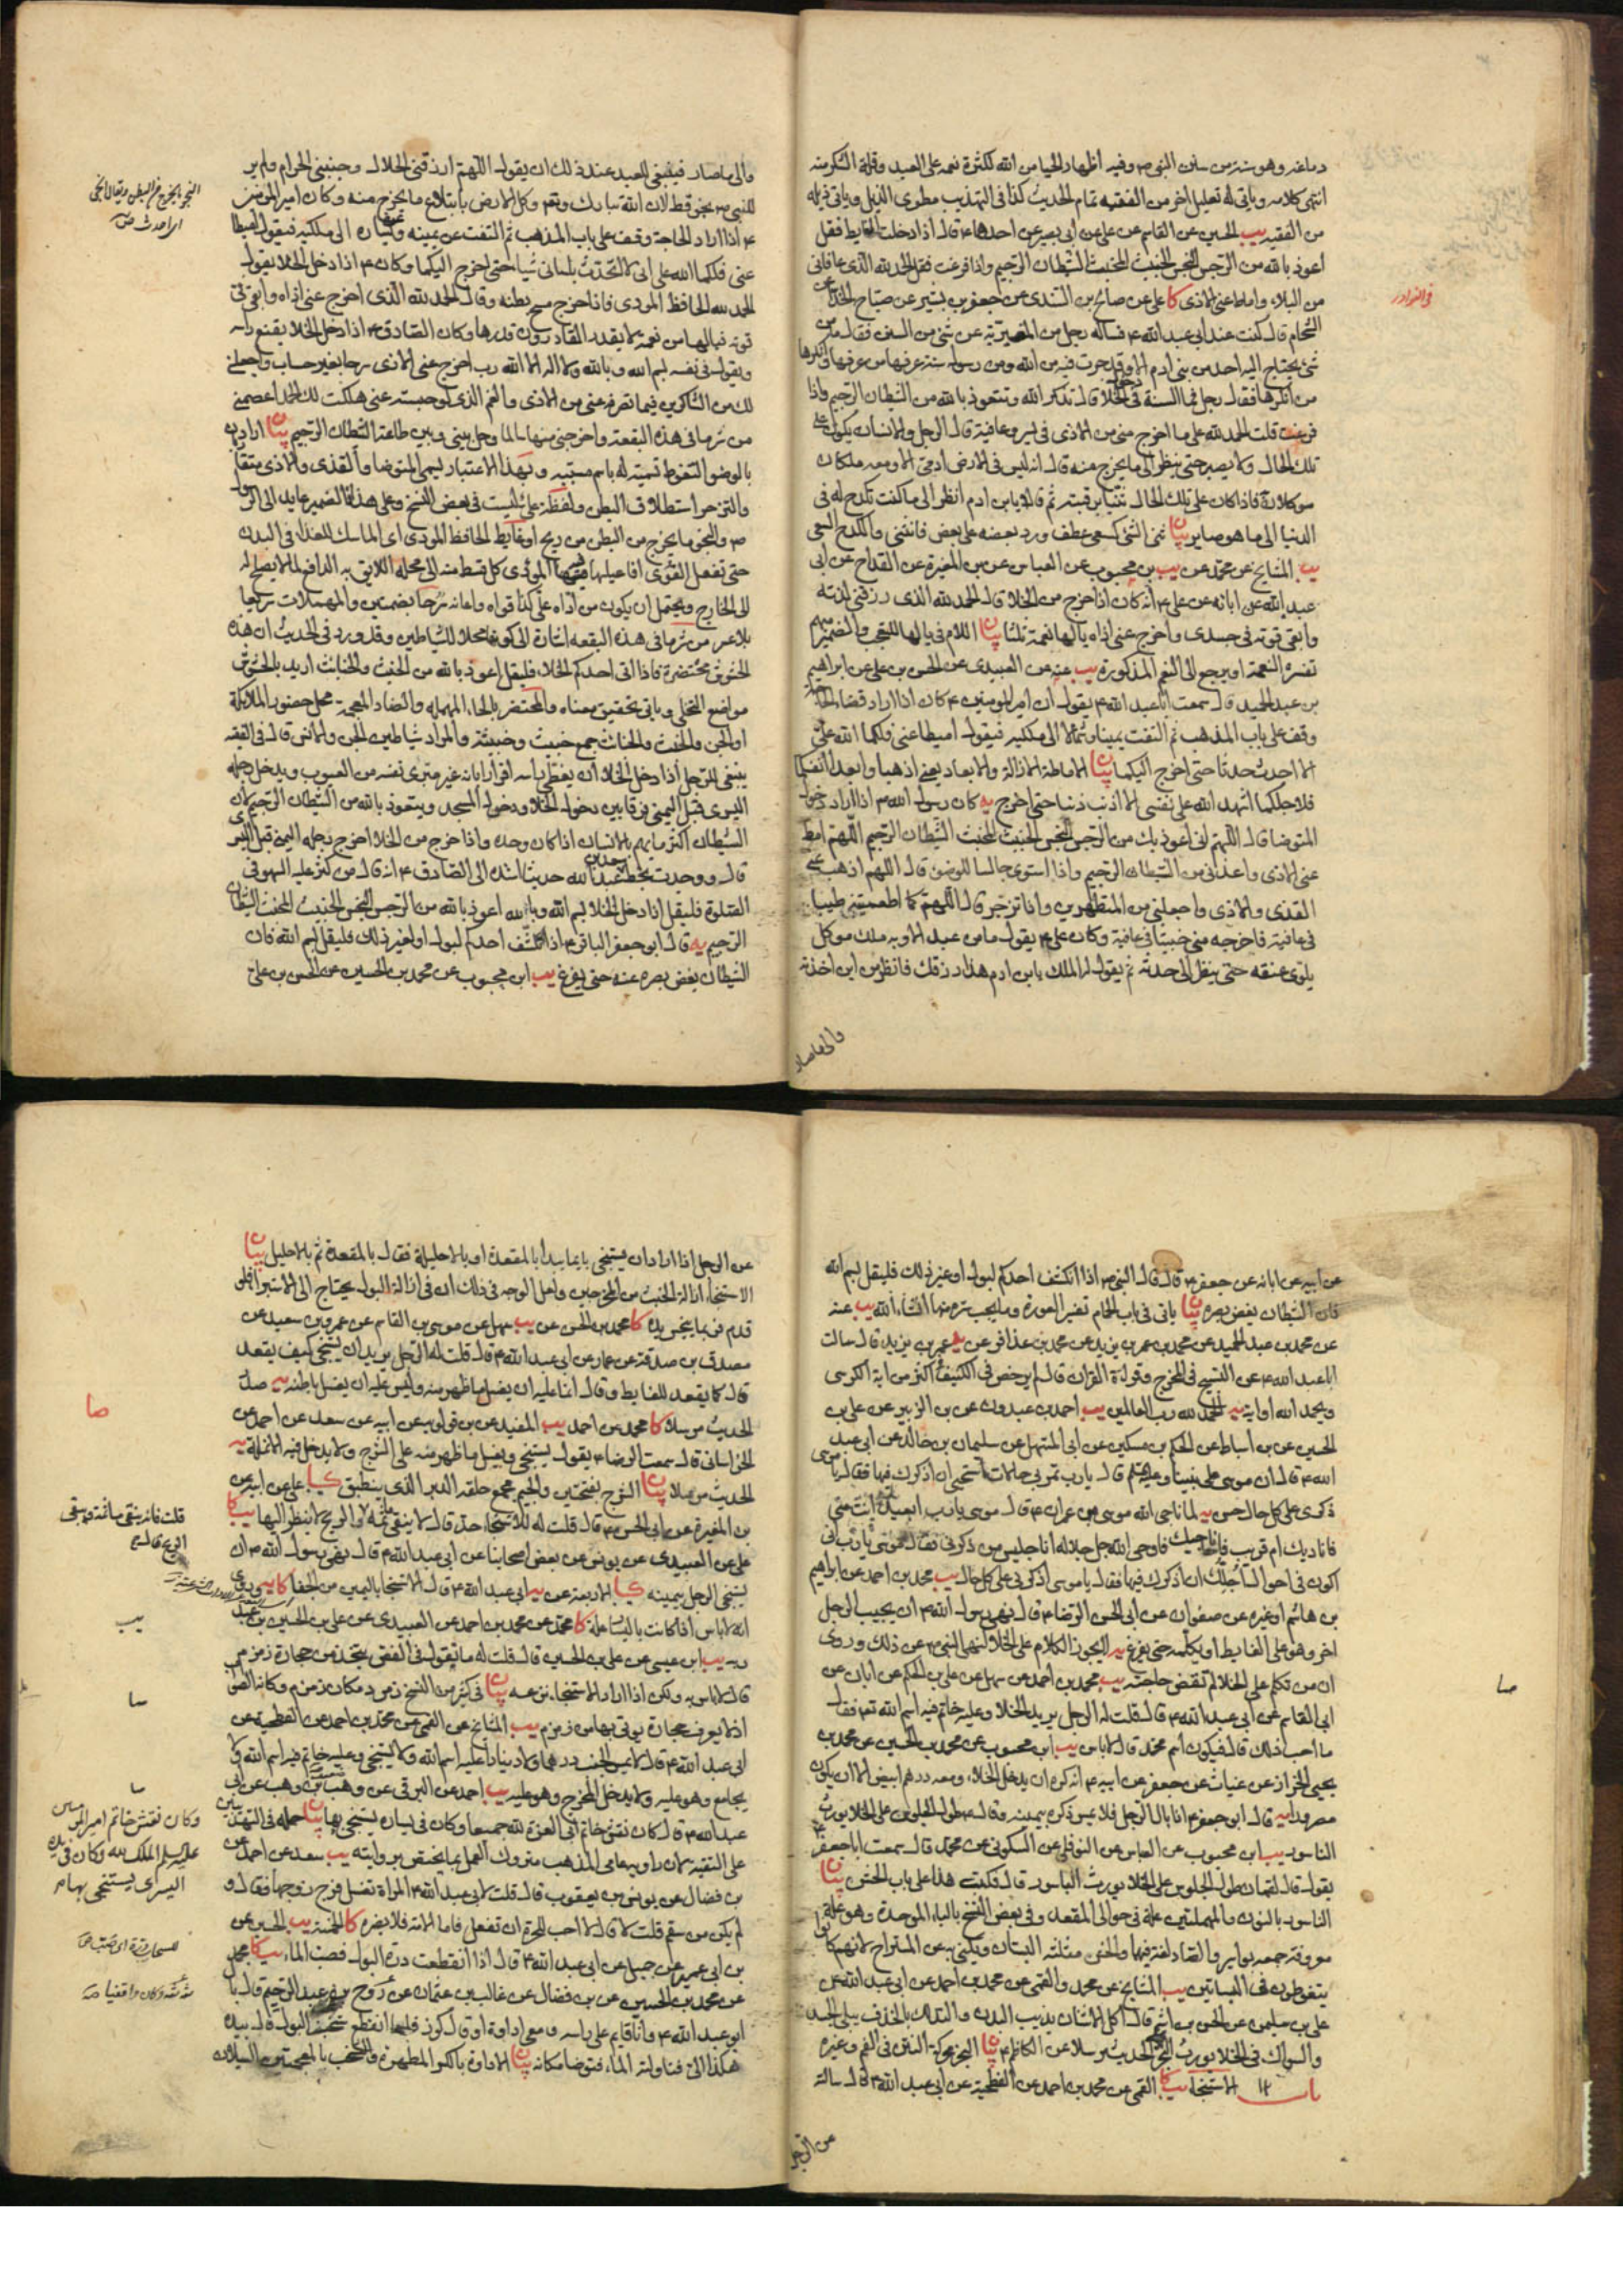 دماغه وهو سنة من سنن النبي ص وفيه اظهار الحيا من الله لكثرة نعمه على العبد وقلة الشكر منه
انتهى كلامه وياتي له تعليل اخر من الفقيه تمام الحديث كذا في التهذيب مطوى الذيل وياتي ذيله
من الفقيه يب الحسين عن القاسم عن علي عن ابي بصير عن احدهما ع قال اذا دخلت الغايط فقل
اعوذ بالله من الرجس النجس الخبيث المخبث الشيطان الرجيم واذا فرغت فقل الحمد لله الذي عافاني
من البلاء واماط عني الاذى كا علي عن صالح بن السندي عن جعفر بن بشير عن صباح الحذاء عن
الشحام قال كنت عند ابي عبد الله ع فساله رجل من المغيرية عن شئ من السنن فقال ما من
شئ يحتاج اليه احد من بني ادم الا وقد جرت فيه من الله ومن رسوله سنة عرفها من عرفها وانكرها
من انكرها فقال رجل فما السنة في دخول الخلا قال تذكر الله وتتعوذ بالله من الشيطان الرجيم فاذا
فرغت قلت الحمد لله على ما اخرج مني من الاذى في يسر وعافية قال الرجل والانسان يكون على
تلك الحال ولا يصبر حتى ينظر الى ما يخرج منه قال انه ليس في الارض ادمي الا ومعه ملكان
موكلان به فاذا كان على تلك الحال ثنيا رقبته ثم قالا يابن ادم انظر الى ما كنت تكدح له في
الدنيا الى ما هو صاير بيان ثنى الشئ كسعى عطف ورد بعضه على بعض فانثنى والكدح السعى
يب المشايخ عن محمد عن يب بن محبوب عن العباس عن بن المغيرة عن القداح عن ابي
عبد الله عن ابائه عن علي ع انه كان اذا خرج من الخلا قال الحمد لله الذي رزقني لذته
وابقى قوته في جسدي واخرج عني اذاه يالها نعمة ثلثا بيان اللام في يالها للتعجب والضمير مبهم
تفسره النعمة او يرجع الى النعم المذكورة يب عنه عن العبيدي عن الحسن بن علي عن ابراهيم
بن عبد الحميد قال سمعت ابا عبد الله ع يقول ان امير المومنين ع كان اذا اراد قضاء الحاجة
وقف على باب المذهب ثم التفت يمينا وشمالا الى ملكيه فيقول اميطا عني فلكما الله علي
الا احدث حدثا حتى اخرج اليكما بيان الاماطة الازالة والابعاد يعني اذهبا وابعدا انفسكما
فلاجلكما اشهد الله على نفسي الا اذنب ذنبا حتى اخرج يه كان رسول الله ص اذا اراد دخول
المتوضا قال اللهم اني اعوذ بك من الرجس النجس الخبيث المخبث الشيطان الرجيم اللهم امط
عني الاذى واعذني من الشيطان الرجيم واذا استوى جالسا للوضوء قال اللهم اذهب عني
القذى والاذى واجعلني من المتطهرين واذا تزحر قال اللهم كما اطعمتنيه طيبا
في عافية فاخرجه مني خبيثا في عافية وكان علي ع يقول ما من عبد الا وبه ملك موكل
يلوي عنقه حتى ينظر الى حدثه ثم يقول له الملك يابن ادم هذا رزقك فانظر من اين اخذته
والى ما صار
في النوادر
والى ما صار فينبغي للعبد عند ذلك ان يقول اللهم ارزقني الحلال وجنبني الحرام ولم ير
للنبي ص نجو قط لان الله تبارك وتعالى وكل الارض بابتلاع ما يخرج منه وكان امير المومنين
ع اذا اراد الحاجة وقف على باب المذهب ثم التفت عن يمينه ويساره الى ملكيه فيقول اميطا
عني فلكما الله علي اني لا اتحدث بلساني شيئا حتى اخرج اليكما وكان ع اذا دخل الخلا يقول
الحمد لله الحافظ المودي فاذا خرج مسح بطنه وقال الحمد لله الذي اخرج عني اذاه وابقى في
قوته فيالها من نعمة لا يقدر القادرون قدرها وكان الصادق ع اذا دخل الخلا يقنع راسه
ويقول في نفسه بسم الله وبالله ولا اله الا الله رب اخرج عني الاذى سرحا بغير حساب واجعلني
لك من الشاكرين فيما تصرفه عني من الاذى والغم الذي لو حبسته عني هلكت لك الحمد اعصمني
من شر ما في هذه البقعة واخرجني منها سالما وحل بيني وبين طاعة الشيطان الرجيم بيان اراد
بالوضو التغوط تسمية له باسم مسببه وبهذا الاعتبار يسمى المتوضا والقذى والاذى متقاربان
والتزحر استطلاق البطن ولفظة علي ليست في بعض النسخ وعلى هذا فالضمير عايد الى الرسول
ص والنجو ما يخرج من البطن من ريح او غايط الحافظ المودي اي الماسك للغذا في البدن
حتى تفعل القوى افاعيلها فيه المودي كل قسط منه الى محله اللايق به الدافع لما لا يصلح له
الى الخارج ويحتمل ان يكون من اداه على كذا قواه واعانه سرحا بضمتين والمهملات سريعا
بلا عسر من شر ما في هذه البقعة اشارة الى كونها محلا للشياطين وقد ورد في الحديث ان هذه
الحشوش محتضرة فاذا اتى احدكم الخلاء فليقل اعوذ بالله من الخبث والخبائث اريد بالحشوش
مواضع التخلي وياتي تحقيق معناه والمحتضر بالحاء المهملة والضاد المعجمة محل حضور الملائكة
او الجن والخبث والخبائث جمع خبيث وخبيثة والمراد شياطين الجن والانس قال في الفقيه
ينبغي للرجل اذا دخل الخلا ان يغطي راسه اقرارا بانه غير مبرئ نفسه من العيوب ويدخل رجله
اليسرى قبل اليمنى فرقا بين دخول الخلا ودخول المسجد ويتعوذ بالله من الشيطان الرجيم لان
الشيطان اكثر ما يهم بالانسان اذا كان وحده واذا خرج من الخلا اخرج رجله اليمنى قبل اليسرى
قال ووجدت بخط سعد بن عبد الله حديثا اسنده الى الصادق ع انه قال من كثر عليه السهو في
الصلوة فليقل اذا دخل الخلا بسم الله وبالله اعوذ بالله من الرجس النجس الخبيث المخبث الشيطان
الرجيم يه قال ابو جعفر الباقر ع اذا انكشف احدكم لبول او لغير ذلك فليقل بسم الله فان
الشيطان يغض بصره عنه حتى يفرغ يب ابن محبوب عن محمد بن الحسين عن الحسن بن علي
النجو ما يخرج من البطن ويقال انجى
اي احدث ص
عن ابيه عن ابائه عن جعفر ع قال قال النبي ص اذا انكشف احدكم لبول او غير ذلك فليقل بسم الله
فان الشيطان يغض بصره بيان ياتي في باب الحمام تفسير العورة وما يجب ستره منها انشاء الله يب عنه
عن محمد بن عبد الحميد عن محمد بن عمر بن يزيد عن محمد بن عذافر عن يه عمر بن يزيد قال سالت
ابا عبد الله ع عن التسبيح في المخرج وقراءة القران قال لم يرخص في الكنيف اكثر من اية الكرسي
ويحمد الله او اية يه الحمد لله رب العالمين يب احمد بن عبدون عن بن الزبير عن علي بن
الحسين عن بن اسباط عن الحكم بن مسكين عن ابي المستهل عن سليمان بن خالد عن ابي عبد
الله ع قال ان موسى على نبينا وعليه السلم قال يا رب تمر بي حالات استحيي ان اذكرك فيها فقال يا موسى
ذكرى على كل حال حسن يه لما ناجى الله موسى بن عمران ع قال موسى يا رب ابعيد انت مني
فاناديك ام قريب فاناجيك فاوحى الله جل جلاله انا جليس من ذكرني فقال موسى يا رب اني
اكون في احوال اجلك ان اذكرك فيها فقال يا موسى اذكرني على كل حال يب محمد بن احمد عن ابراهيم
بن هاشم او غيره عن صفوان عن ابي الحسن الرضا ع قال نهى رسول الله ص ان يجيب الرجل
اخر وهو على الغايط او يكلمه حتى يفرغ يه لا يجوز الكلام على الخلا لنهي النبي ص عن ذلك وروى
ان من تكلم على الخلا لم تقض حاجته يب محمد بن احمد عن سهل عن علي بن الحكم عن ابان عن
ابي القاسم عن ابي عبد الله ع قال قلت له الرجل يريد الخلا وعليه خاتم فيه اسم الله تعالى فقال
ما احب ذلك قال فيكون اسم محمد قال لا باس يب ابن محبوب عن محمد بن الحسين عن محمد بن
يحيى الخزاز عن غياث عن جعفر عن ابيه ع انه كره ان يدخل الخلاء ومعه درهم ابيض الا ان يكون
مصرورا يه قال ابو جعفر ع اذا بال الرجل فلا يمس ذكره بيمينه وقال ع طول الجلوس على الخلا يورث
الناسور يب ابن محبوب عن العباس عن النوفلي عن السكوني عن محمد قال سمعت ابا جعفر ع
يقول قال لقمان طول الجلوس على الخلا يورث الباسور قال فكتب هذا على باب الحش بيان
الناسور بالنون والمهملتين علة في حوالى المقعد وفي بعض النسخ بالباء الموحدة وهو علة
معروفة جمعه بواسير والصاد لغة فيهما والحش مثلثة البستان ويكنى به عن المستراح لانهم كانوا
يتغوطون في البساتين يب المشايخ عن محمد والقمي عن محمد بن احمد عن ابي عبد الله عن
علي بن سليمن عن الحسن بن اشيم قال اكل الاشنان يذيب البدن والتدلك بالخزف يبلي الجسد
والسواك في الخلا يورث البخر الحديث مرسلا عن الكاظم ع بيان البخر محركة النتن في الفم وغيره
باب الاستنجا يب كا القمي عن محمد بن احمد عن الفطحية عن ابي عبد الله ع قال سالته
عن الرجل
صا
عن الرجل اذا اراد ان يستنجي بايما يبدا بالمقعدة او بالاحليل فقال بالمقعدة ثم بالاحليل بيان
الاستنجا ازالة الخبث من المخرجين ولعل الوجه في ذلك ان في ازالة البول يحتاج الى الاستبرا فلو
قدم فربما ينجس يده كا محمد بن الحسن عن يب سهل عن موسى بن القاسم عن عمرو بن سعيد عن
مصدق بن صدقة عن عمار عن ابي عبد الله ع قال قلت له الرجل يريد ان يستنجي كيف يقعد
قال كما يقعد للغايط وقال انما عليه ان يغسل ما ظهر منه وليس عليه ان يغسل باطنه يه صدر
الحديث مرسلا كا محمد عن احمد يب المفيد عن بن قولويه عن ابيه عن سعد عن احمد عن
الخراساني قال سمعت الرضا ع يقول يستنجي ويغسل ما ظهر منه على الشرج ولا يدخل فيه الانملة يه
الحديث مرسلا بيان الشرج بفتحتين والجيم مجمع حلقة الدبر الذي ينطبق كا علي عن ابيه عن
بن المغيرة عن ابي الحسن ع قال قلت له للاستنجاء حد قال لا ينقى ما ثمة والريح لا ينظر اليها يب كا
علي عن العبيدي عن يونس عن بعض اصحابنا عن ابي عبد الله ع قال نهى رسول الله ص ان
يستنجي الرجل بيمينه كا الاربعة عن يه ابي عبد الله ع قال الاستنجا باليمين من الجفا كا يه وروى
انه لا باس اذا كانت باليسار علة كا محمد عن محمد بن احمد عن العبيدي عن علي بن الحسين بن عبد
ربه يب ابن عيسى عن علي بن الحسين قال قلت له ما تقول في الفص يتخذ من حجارة زمزم
قال لا باس به ولكن اذا اراد الاستنجاء نزعه بيان في كثير من النسخ زمرد مكان زمزم وكانه الصواب
اذ لا يعرف حجارة يوتى بها من زمزم يب المشايخ عن القمي عن محمد بن احمد عن الفطحية عن
ابي عبد الله ع قال لا يمس الجنب درهما ولا دينارا عليه اسم الله ولا يستنجي وعليه خاتم فيه اسم الله ولا
يجامع وهو عليه ولا يدخل المخرج وهو عليه يب احمد عن البرقي عن وهب بن وهب عن ابي
عبد الله ع قال كان نقش خاتم ابي العزة لله جميعا وكان في يساره يستنجي بها بيان حمله في التهذيبين
على التقية لان راويه عامي المذهب متروك العمل بما يختص بروايته يب سعد عن احمد عن
بن فضال عن يونس بن يعقوب قال قلت لابي عبد الله ع المراة تغسل فرج زوجها فقال ولم
لم يكن من سقم قلت لا قال لا احب للحرة ان تفعل فاما الامة فلا يضره كا الخمسة يب الحسين عن
بن ابي عمير عن جميل عن ابي عبد الله ع قال اذا انقطعت درة البول فصب الماء يب كا محمد
عن محمد بن الحسين عن بن فضال عن غالب بن عثمان عن روح بن عبد الرحيم قال بال
ابو عبد الله ع وانا قايم على راسه ومعي اداوة او قال كوز فلما انقطع شخب البول قال بيده
هكذا الي فناولته الماء فتوضا مكانه بيان الاداوة بالكسر المطهرة والشخب بالمعجمتين السيلان
صا
قلت فانه ينقى ما ثمة ويبقى
الريح قال ع
يب
صا
صا
وكان نقش خاتم امير المومنين
عليه السلم الملك لله وكان في يده
اليسرى يستنجى بها م